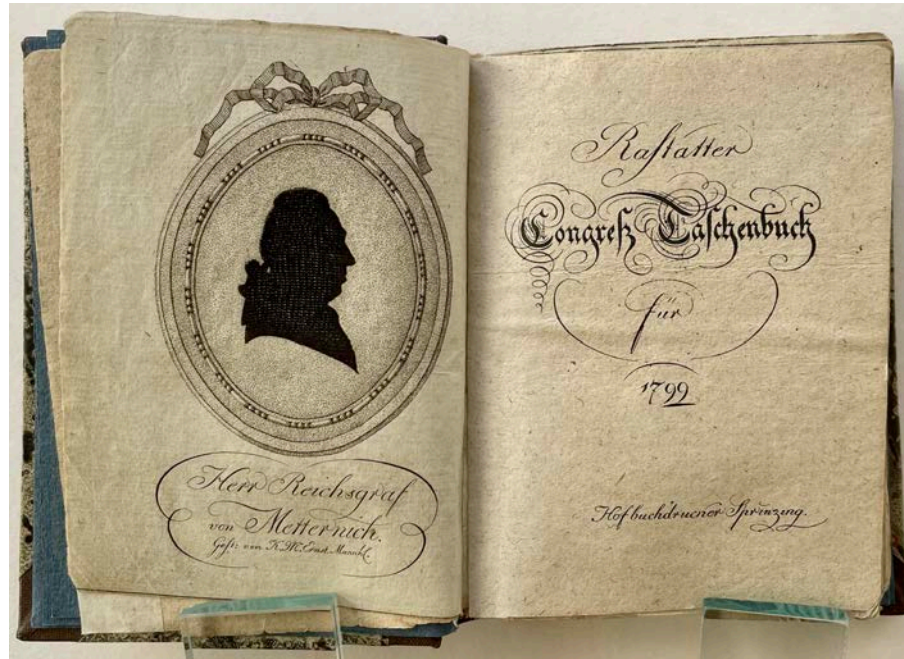 Herr Reichsgraf
von Metternich.
Gest: von K. M. Ernst Mannh.
Raſtatter
Congreſz Taſchenbuch
für
1799
Hofbuchdrucner Sprinzing.